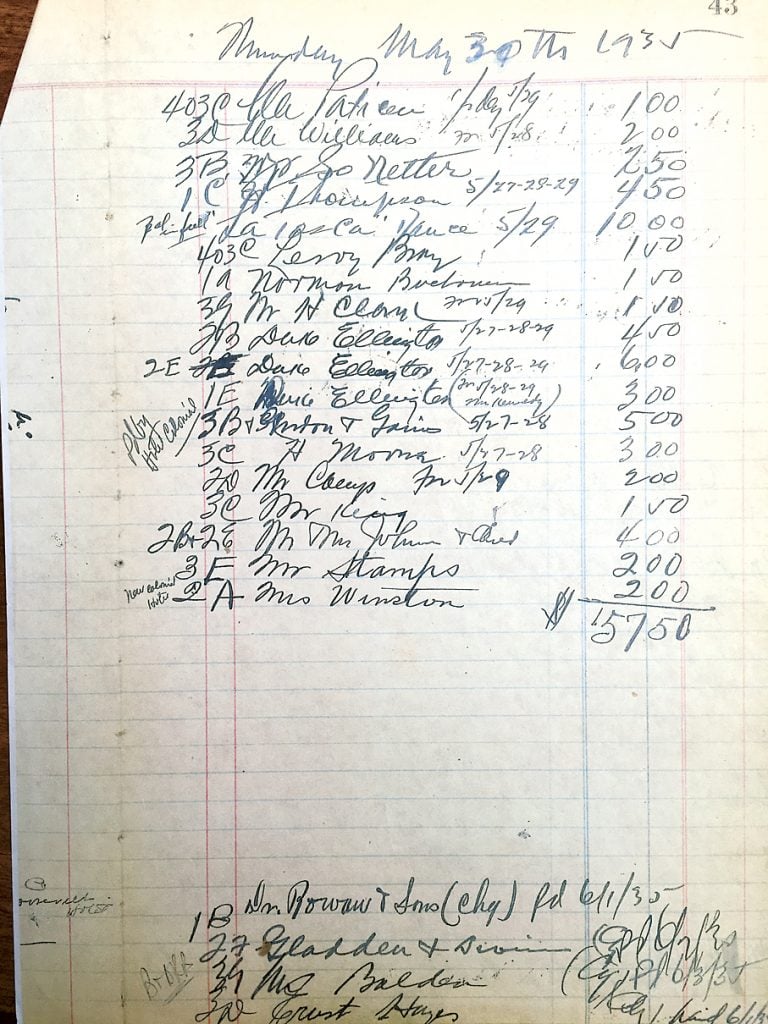 43
Thursday May 30th 1935
403C Mr 1/2 day 5/29 1 00
3D Mr Williams for 5/28 2 00
3B Mr Jo Netter 2 50
1C H. Thompson 5/27-28-29 4 50
La Dance 5/29 10 00
403C Leroy Bray 1 50
1A Norman 1 50
3G Mr H Clary for 5/29 1 50
2B Duke Ellington 5/27-28-29 4 50
2E Duke Ellington 5/27-28-29 6 00
1E Duke Ellington (for 5/28-29 Mr Kennedy) 3 00
pd by Hotel Colonial
3B & Gains 5/27-28 5 00
3C H Moore 5/27-28 3 00
2D Mr Camp for 5/29 2 00
3C Mr King 1 50
2B+2E Mr Mrs Johnson & 4 00
3E Mr Stamps 2 00
New Colonial Hotel
2A Mrs Winston 2 00
$ 57 50
Roosevelt Hotel
1B Dr. Rowan & Sons (Chg) Pd 6/1/35
2F Gladden &
3G Balden 6/3/35
3D Hayes